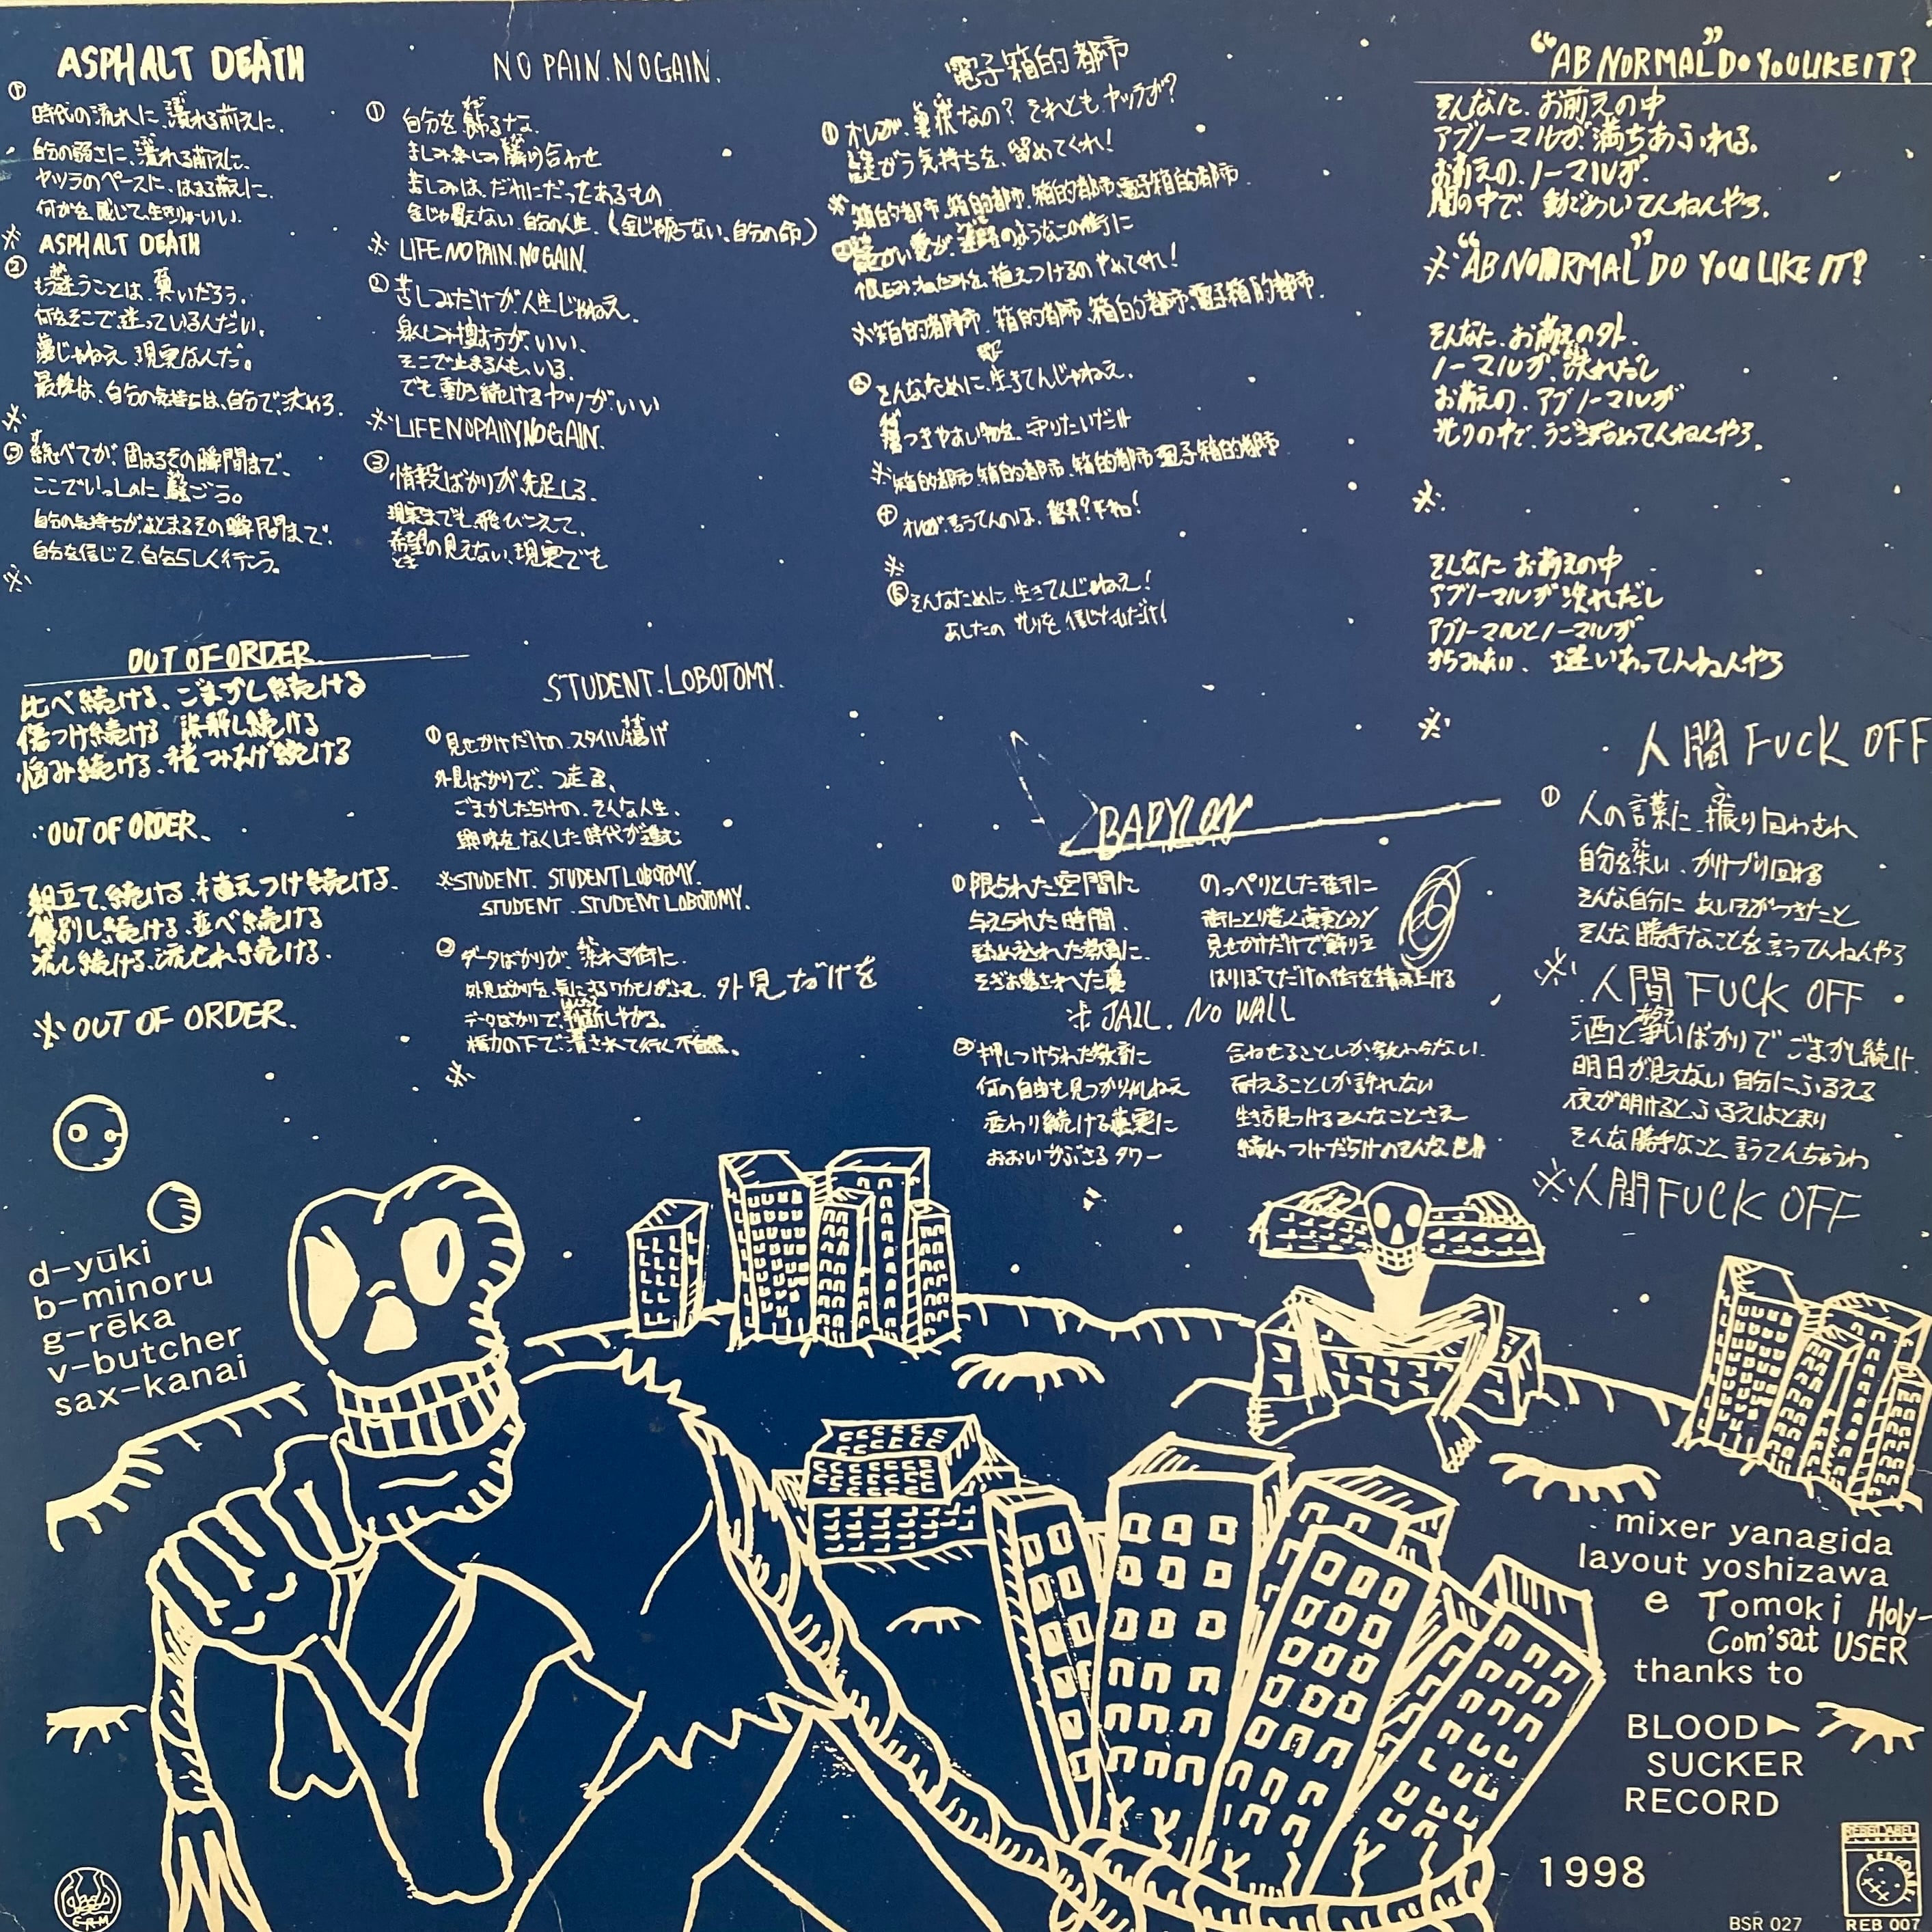 ASPHALT DEATH
①
時代の流れに、潰れる前えに、
自分の弱さに、潰れる前えに、
ヤツラのペースに、はまる前えに、
何かを、感じて、生きりゃいい、
※ ASPHALT DEATH
②
もう迷うことは、無いだろう。
何をそこで、迷っているんだい、
夢じゃねえ、現実なんだ。
最後は、自分の気持ちは、自分で、決めろ、
※
③ 総べてが、固まるその瞬間まで、
ここでいっしょに
自分の気持ちが、まとまるその瞬間まで、
自分を信じて、自分らしく行こう。
※
NO PAIN. NO GAIN.
① 自分を飾るな、
苦しみ楽しみ隣り合わせ
苦しみは、だれにだってあるもの
金じゃ買えない、自分の人生、(金じゃ売らない、自分の命)
※ LIFE NO PAIN. NO GAIN.
② 苦しみだけが、人生じゃねえ、
楽しみ
そこで止まる人も、いる、
でも動き続けるヤツが、いい
※ LIFE NO PAIN NO GAIN.
③ 情報ばかりが先走しる、
現実までも、飛びこえて、
希望の見えない、現実でも
電子箱的都市
① オレが、異状なの? それとも、ヤツラが?
気持ちを、留めてくれ!
※ 箱的都市、箱的都市、箱的都市、電子箱的都市
② 愛が、迷路のようなこの街に
恨しみ、ねたみを、植えつけるの やめてくれ!
※ 箱的都市、箱的都市、箱的都市、電子箱的都市、
③ そんなために、生きてんじゃねえ、
傷つきやすい物を、守りたいだけ
※ 箱的都市、箱的都市、箱的都市 電子箱的都市
④ オレが、言うてんのは、
※
⑤ そんなために、生きてんじゃねえ!
あしたの 光りを、信じたいだけ!
“AB NORMAL” DO YOU LIKE IT?
そんなに、お前えの中
アブノーマルが、満ちあふれる。
お前えの、ノーマルが、
闇の中で、動ごめいてんねんやろ、
※ “AB NORMAL” DO YOU LIKE IT?
そんなに、お前えの外、
ノーマルが、流れだし
お前えの、アブノーマルが
光りの中で、うごき始めてんねんやろ、
※
そんなに お前えの中
アブノーマルが 流れだし
アブノーマルとノーマルが
からみあい、迷いあってんねんやろ
※
OUT OF ORDER
比べ続ける、ごまかし続ける
傷つけ続ける 誤解し続ける
悩み続ける、積みあげ続ける
OUT OF ORDER、
組立て続ける、植えつけ続ける、
し続ける、並べ続ける
流し続ける、流され続ける、
※ OUT OF ORDER.
STUDENT. LOBOTOMY.
① 見せかけだけの、スタイル掲げ
外見ばかりで、つっ走る、
ごまかしだらけの、そんな人生、
興味をなくした時代が進む
※ STUDENT. STUDENT LOBOTOMY.
STUDENT. STUDENT LOBOTOMY.
② データばかりが、流れる街に、
外見ばかりを、気にするワカモノがふえ、外見だけを
データばかりで、判断しやがる。
権力の下で、潰されて行く不自然。
※
BABYLON
① 限られた空間に
与えられた時間、
詰め込れた教育に、
のっぺりとした街に
街にとり巻く真実と
見せかけだけで、飾り立
はりぼてだけの街を積み上げる
※ JAIL. NO WALL
② 押しつけられた教育に
何の自由も見つかりゃしねえ
変わり続ける真実に
おおいかぶさるタワー
合わせることしか教わらない、
耐えることしか許れない
生き方見つけるそんなことさえ
締めつけだらけのそんな世界
人間 FUCK OFF
① 人の言葉に、振り回わされ
自分を失い、かけずり回わる
そんな自分に あいそがつきたこと
そんな勝手なことを言うてんねんやろ
※ 人間 FUCK OFF
酒と争いばかりで ごまかし続け、
明日が見えない 自分にふるえる
夜が明けると、ふるえはとまり
そんな勝手なこと 言うてんちゃうわ
※ 人間 FUCK OFF
d-yūki
b-minoru
g-rēka
v-butcher
sax-kanai
mixer yanagida
layout yoshizawa
e Tomoki Holy-
Com'sat USER
thanks to
BLOOD
SUCKER
RECORD
1998
REBEL LABEL
REB 007
BSR 027
C.R.M